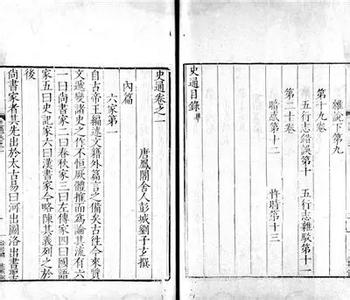 雜說下第九
第十九卷
五行志錯誤第十　五行志雜駁十一
第二十卷
暗惑第十二　忤時第十三
史通目錄
史通卷之一
唐鳳閣舍人彭城劉子玄撰
內篇
六家第一
自古帝王編述文籍外篇言之備矣古往今來質
文遞變諸史之作不恒厥體搉而為論其流有六
一曰尚書家二曰春秋家三曰左傳家四曰國語
家五曰史記家六曰漢書家今略陳其義列之於
後
尚書家者其先出於太古易曰河出圖洛出書